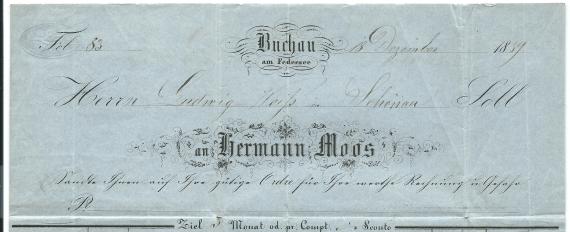 Fol 83 Buchau 18 Dezember 1859
am Federsee
Herrn Ludwig in Schönau Soll
an Hermann Moos
Sandte Ihnen auf Ihre gütige Ordre für Ihre werthe Rechnung u. Gefahr
Pr
Ziel Monat od. pr. Compt. Sconto